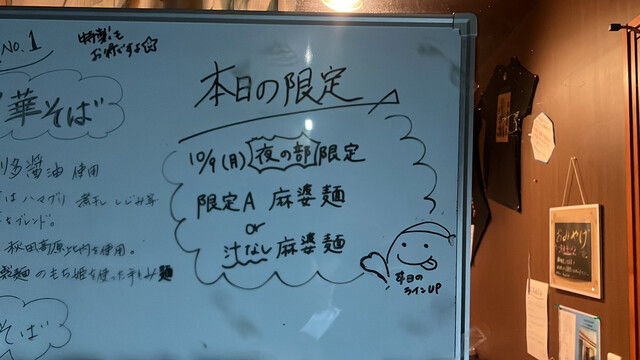 No.1
特製も
お得ですよ☆
華そば
醤油 使用
はハマグリ 煮干し しじみ等
をブレンド。
秋田高原比内を使用。
製麺のもち姫を使った手もみ麺
そば
本日の限定
10/9(月) 夜の部 限定
限定A 麻婆麺
or
汁なし麻婆麺
本日の
ラインUP
おみやげ